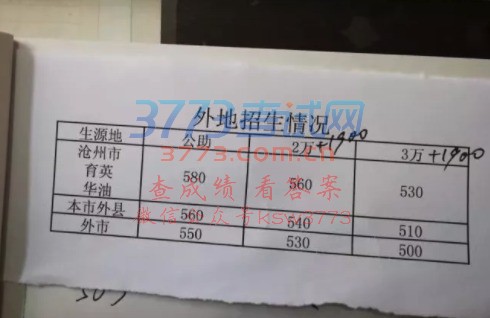 3773考试网
外地招生情况
生源地 公助 2万+1900 3万+1900
沧州市
育英 580 560 530
华油
本市外县 560 540 510
外市 550 530 500
3773.com.cn
查成绩看答案
微信公众号ksw3773